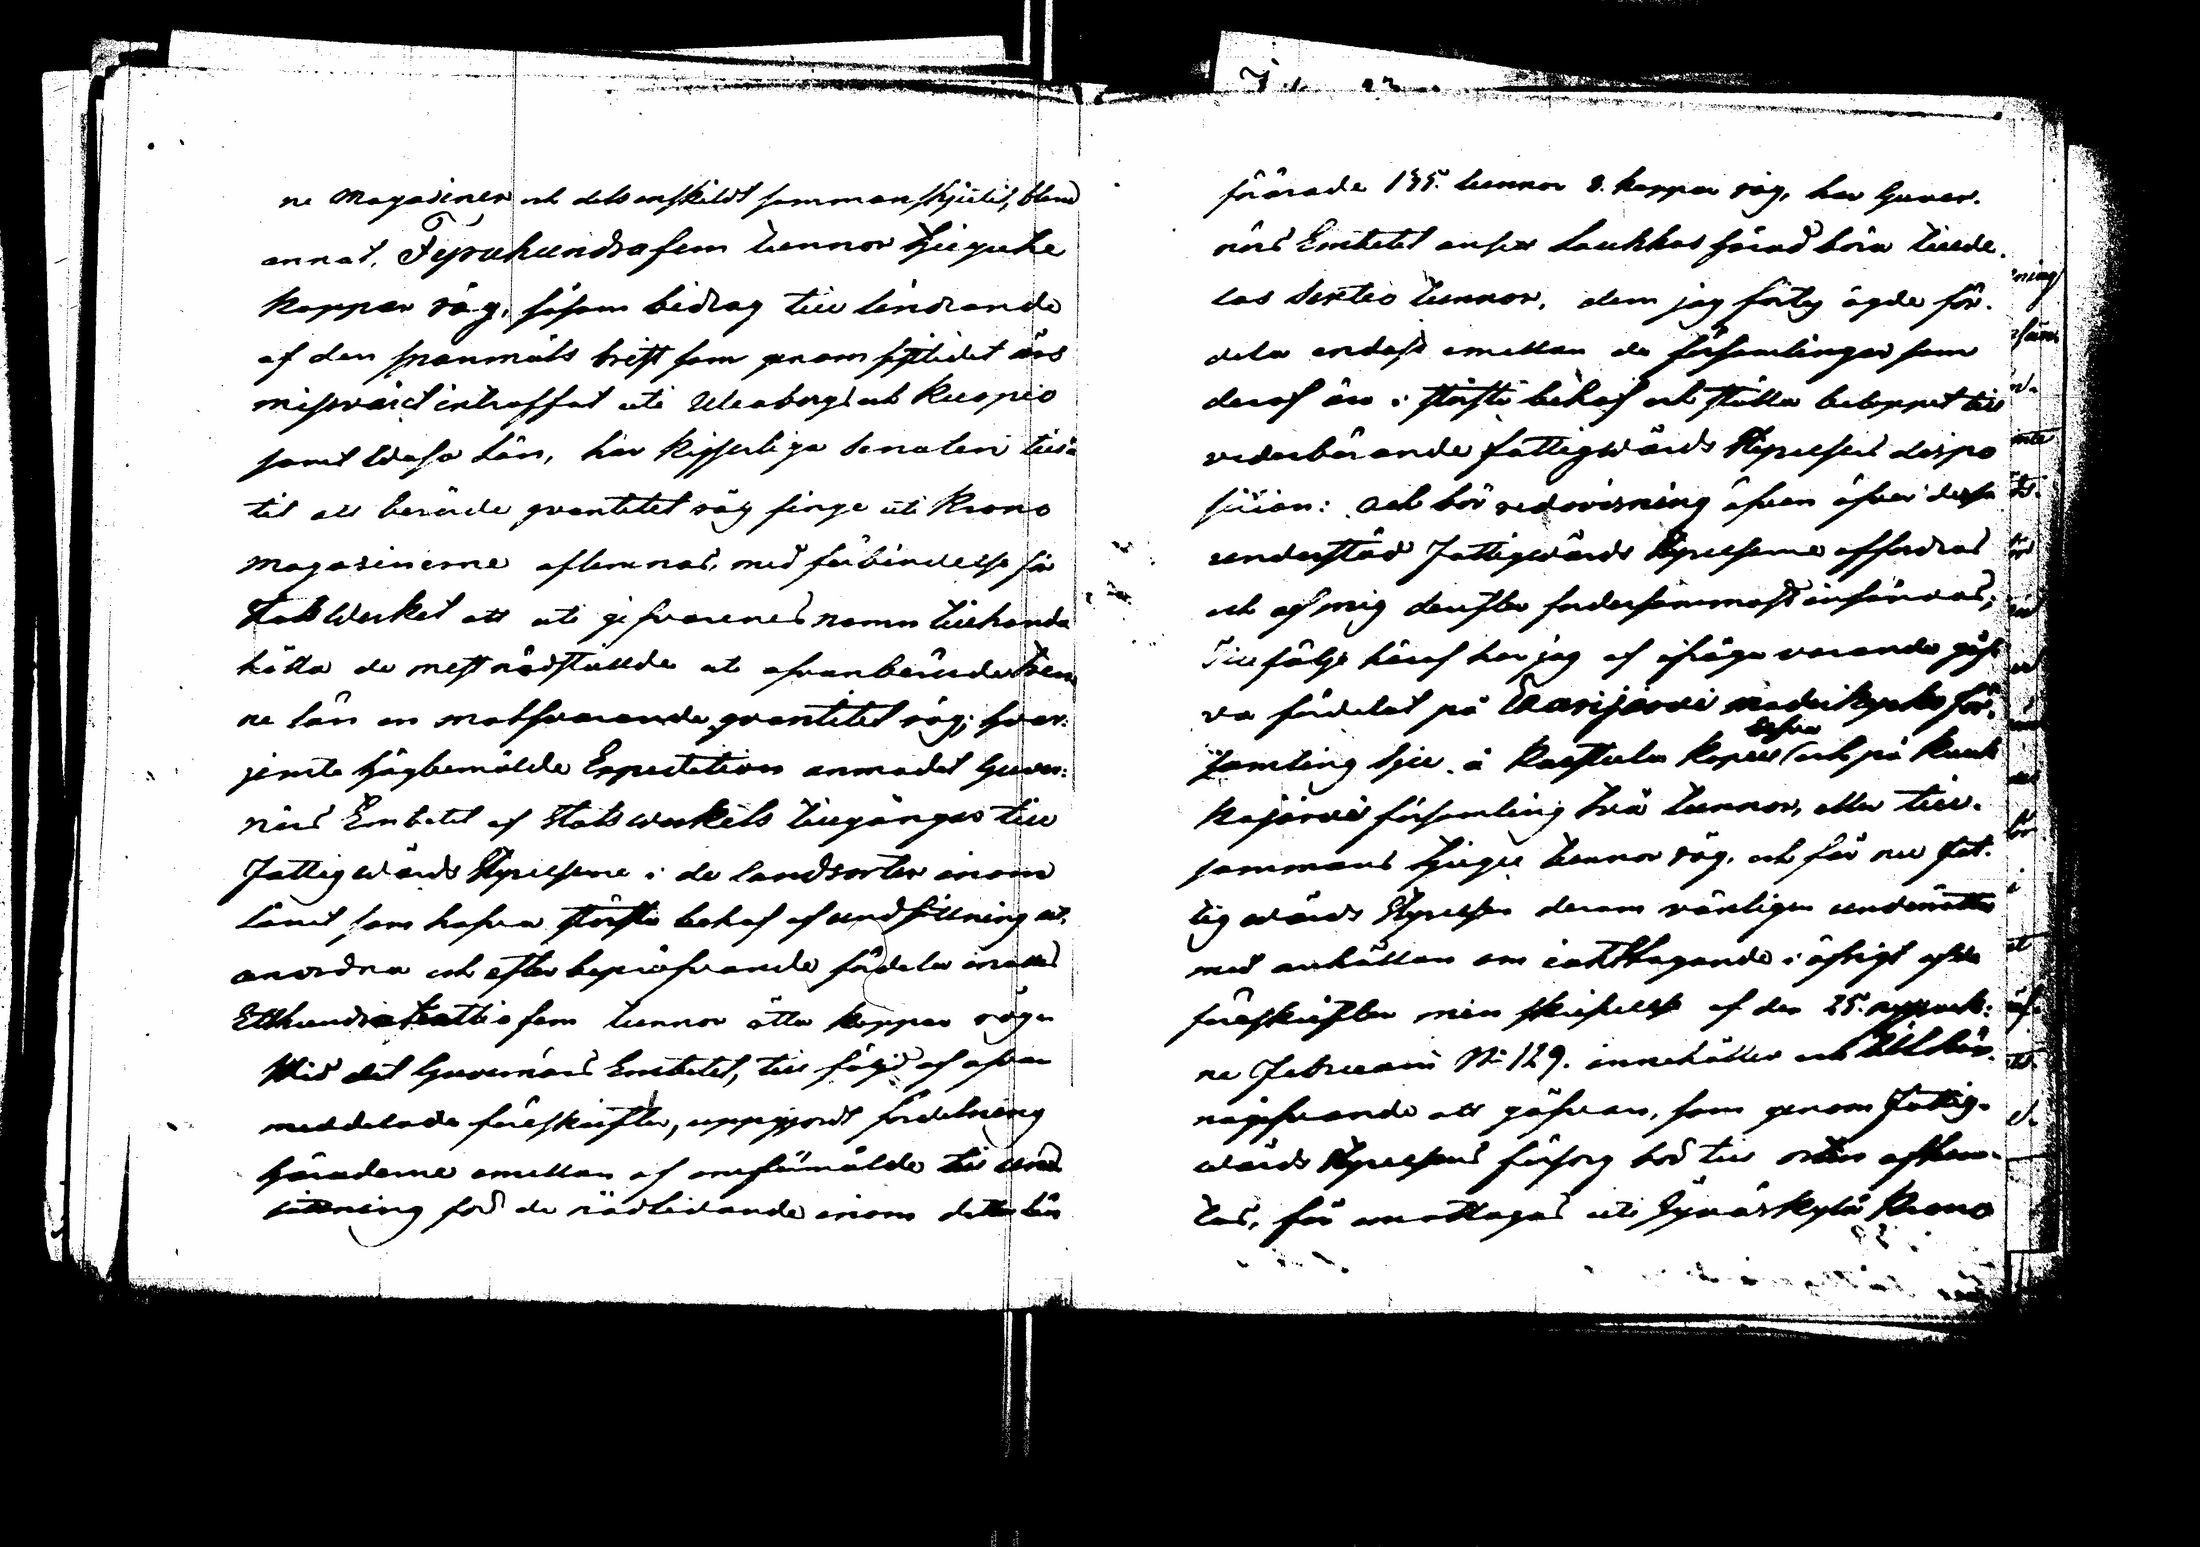 ne Magasiner och dels enskildt sammanskjutit, bland
annat, Fyrahundrafem tunnor tjugutre
kappar råg, såsom bidrag till lindrande
af den spanmåls brist som genom sistlidet års
missväxt inträffat uti Uleåborgs och Kuopio
samt Wasa Län, har Kejserliga Senaten tillå
tit att berörde qvantitet råg finge uti Krono
magasinerne aflemnas, med förbindelse för
Stats Werket att uti gifvarenes namn tillhanda
hålla de mest nödstälde uti ofvanberörde tren
ne län en motsvarande qvantitet råg; hvar:
jemte högbemälde Expedition anmodat Guver:
nörs Embetet af Statswerkets tillgångar till
Fattigwårds Styrelserne i de landsorter inom
länet som hafva största behof af undsättning ut,
anordna och efter bepröfvande fördela
Etthundratrettiofem tunnor åtta kappar råg.
Wid det Guvernörs Embetet, till följd af ofvan
meddelade föreskrifter, uppgjordt fördelning
häraderne emellan af omförmälde till und
sättning för de nödlidande inom detta län
förärade 135. tunnor 8. kappar råg, har Guver.
nörs Embetet ansett Laukkas härad böra tillde.
las Sextio tunnor, dem jag förty ägde för.
dela endast emellan de församlingar som
deraf äro i största behof och ställa beloppet till
vederbörande fattigwårds Styrelsers dispo
sition: och bör redovisning äfven öfver dessa
understöd Fattigwårds Styrelserne affordras
och af mig derefter fordersammast insändas;
Till följe häraf har jag af ifråga varande gåf
va fördelat på Saarijärvi moderkyrko för.
samling sju, å Karstula Kapell och på Kuik
kajärvi församling två tunnor, eller till.
sammans tjugu tunnor råg, och får nu Fat.
tig wårds Styrelsen derom vänligen underrätta
med anhållan om iakttagande i öfrigt af de
föreskrifter min skrifvelse af den 25.
ne Februarii No 129. innehåller och
någifvande att gåfvan, som genom Fattig.
wårds Styrelsens försorg bör till orten afhem.
tas, får emottagas uti Jyväskylä Krono